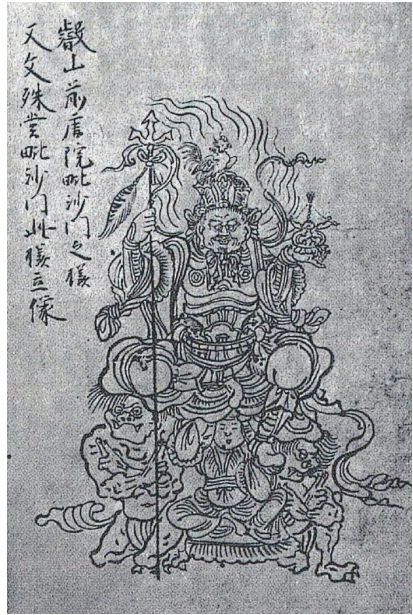 叡山前唐院毗沙门之様
又文殊堂毗沙门此様立像